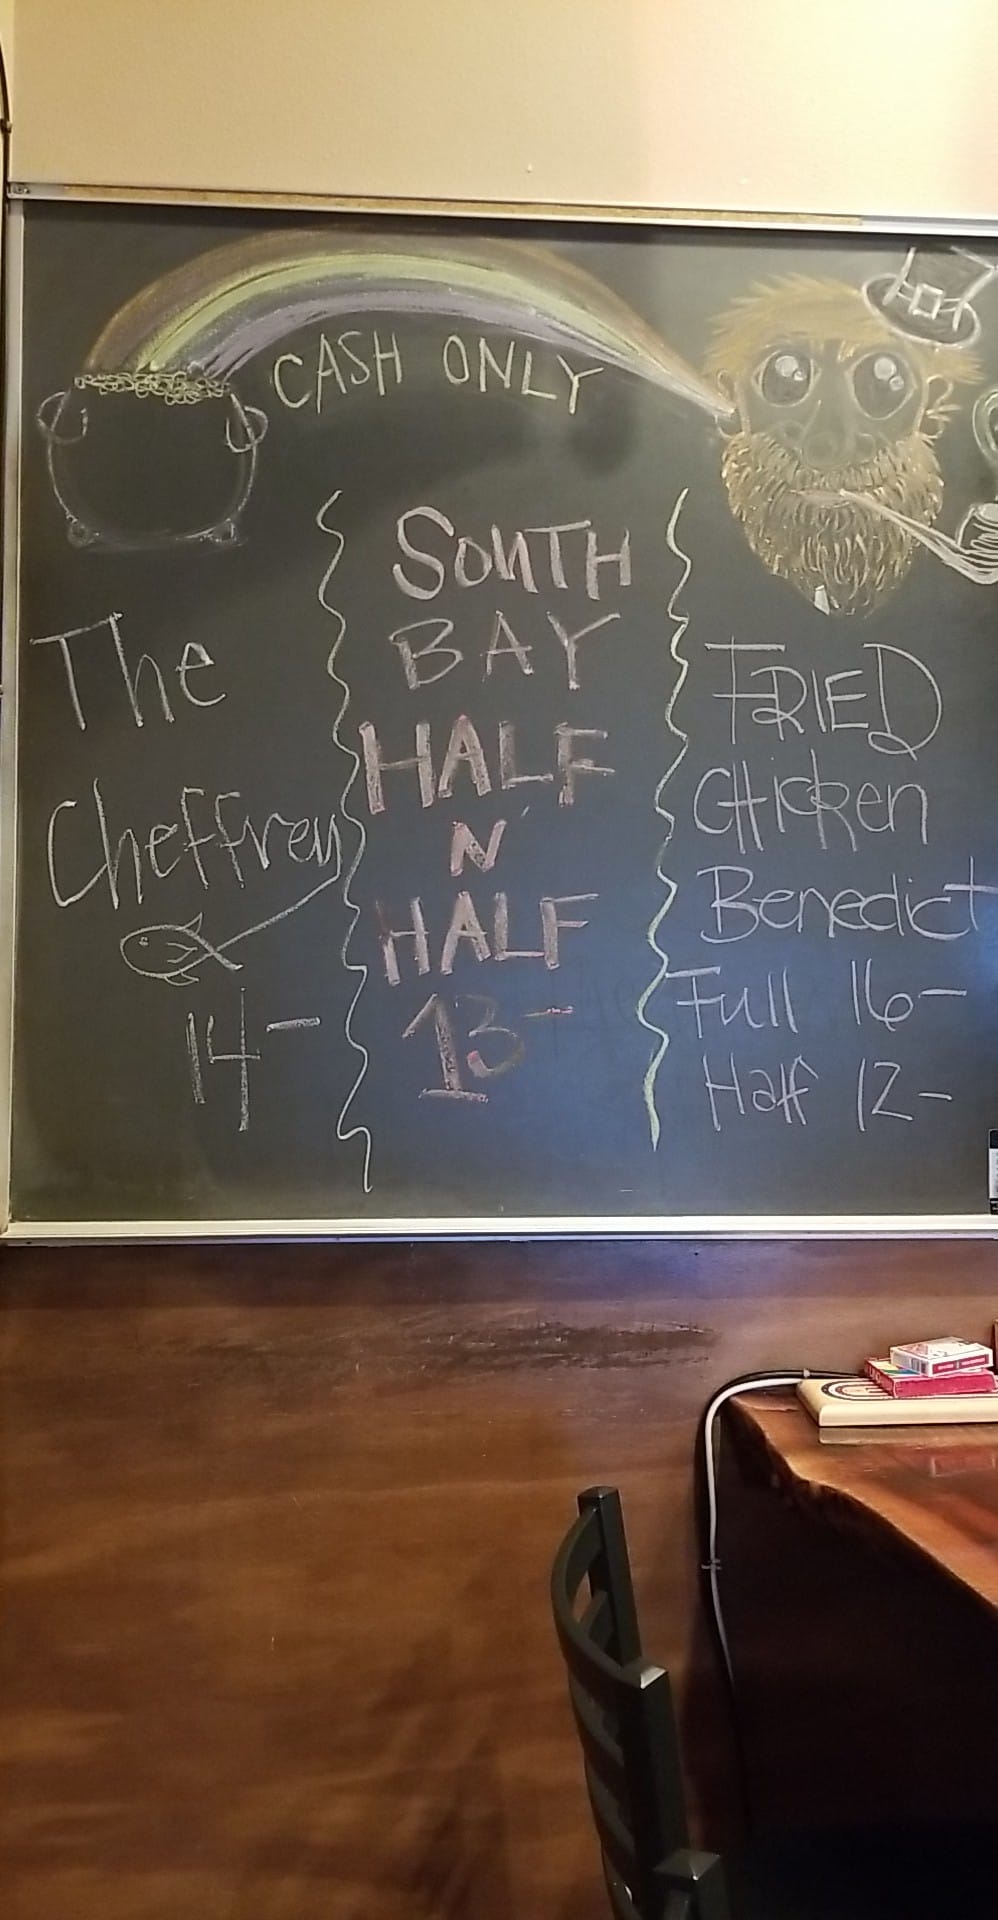 CASH ONLY
The
Cheffrey
14-
SOUTH
BAY
HALF
N
HALF
13-
FRIED
CHicken
Benedict
Full 16-
Half 12-